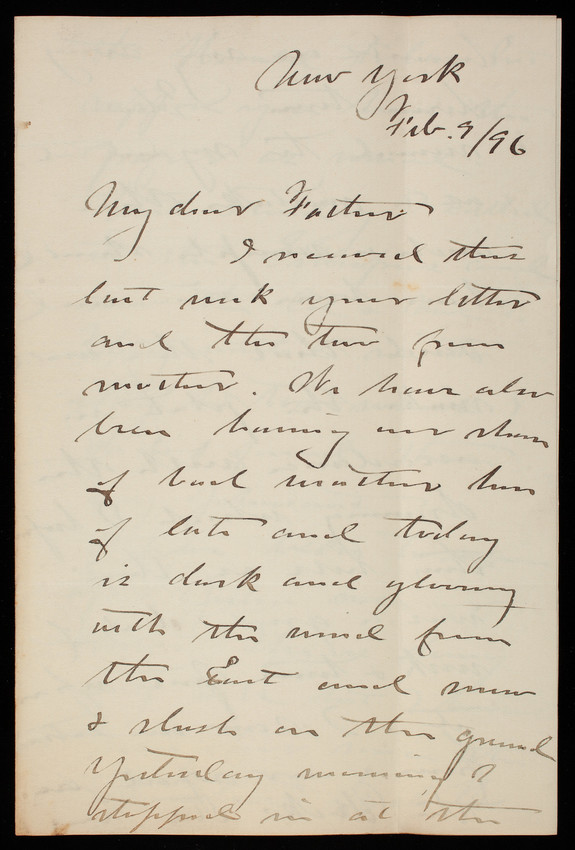 New York
Feb. 9/96
My dear Father
I received this
last week your letter
and the two from
mother. We have also
been having our share
of bad weather here
of late and today
is dark and gloomy
with the wind from
the East and snow
& slush on the ground
Yesterday morning I
stopped in at the